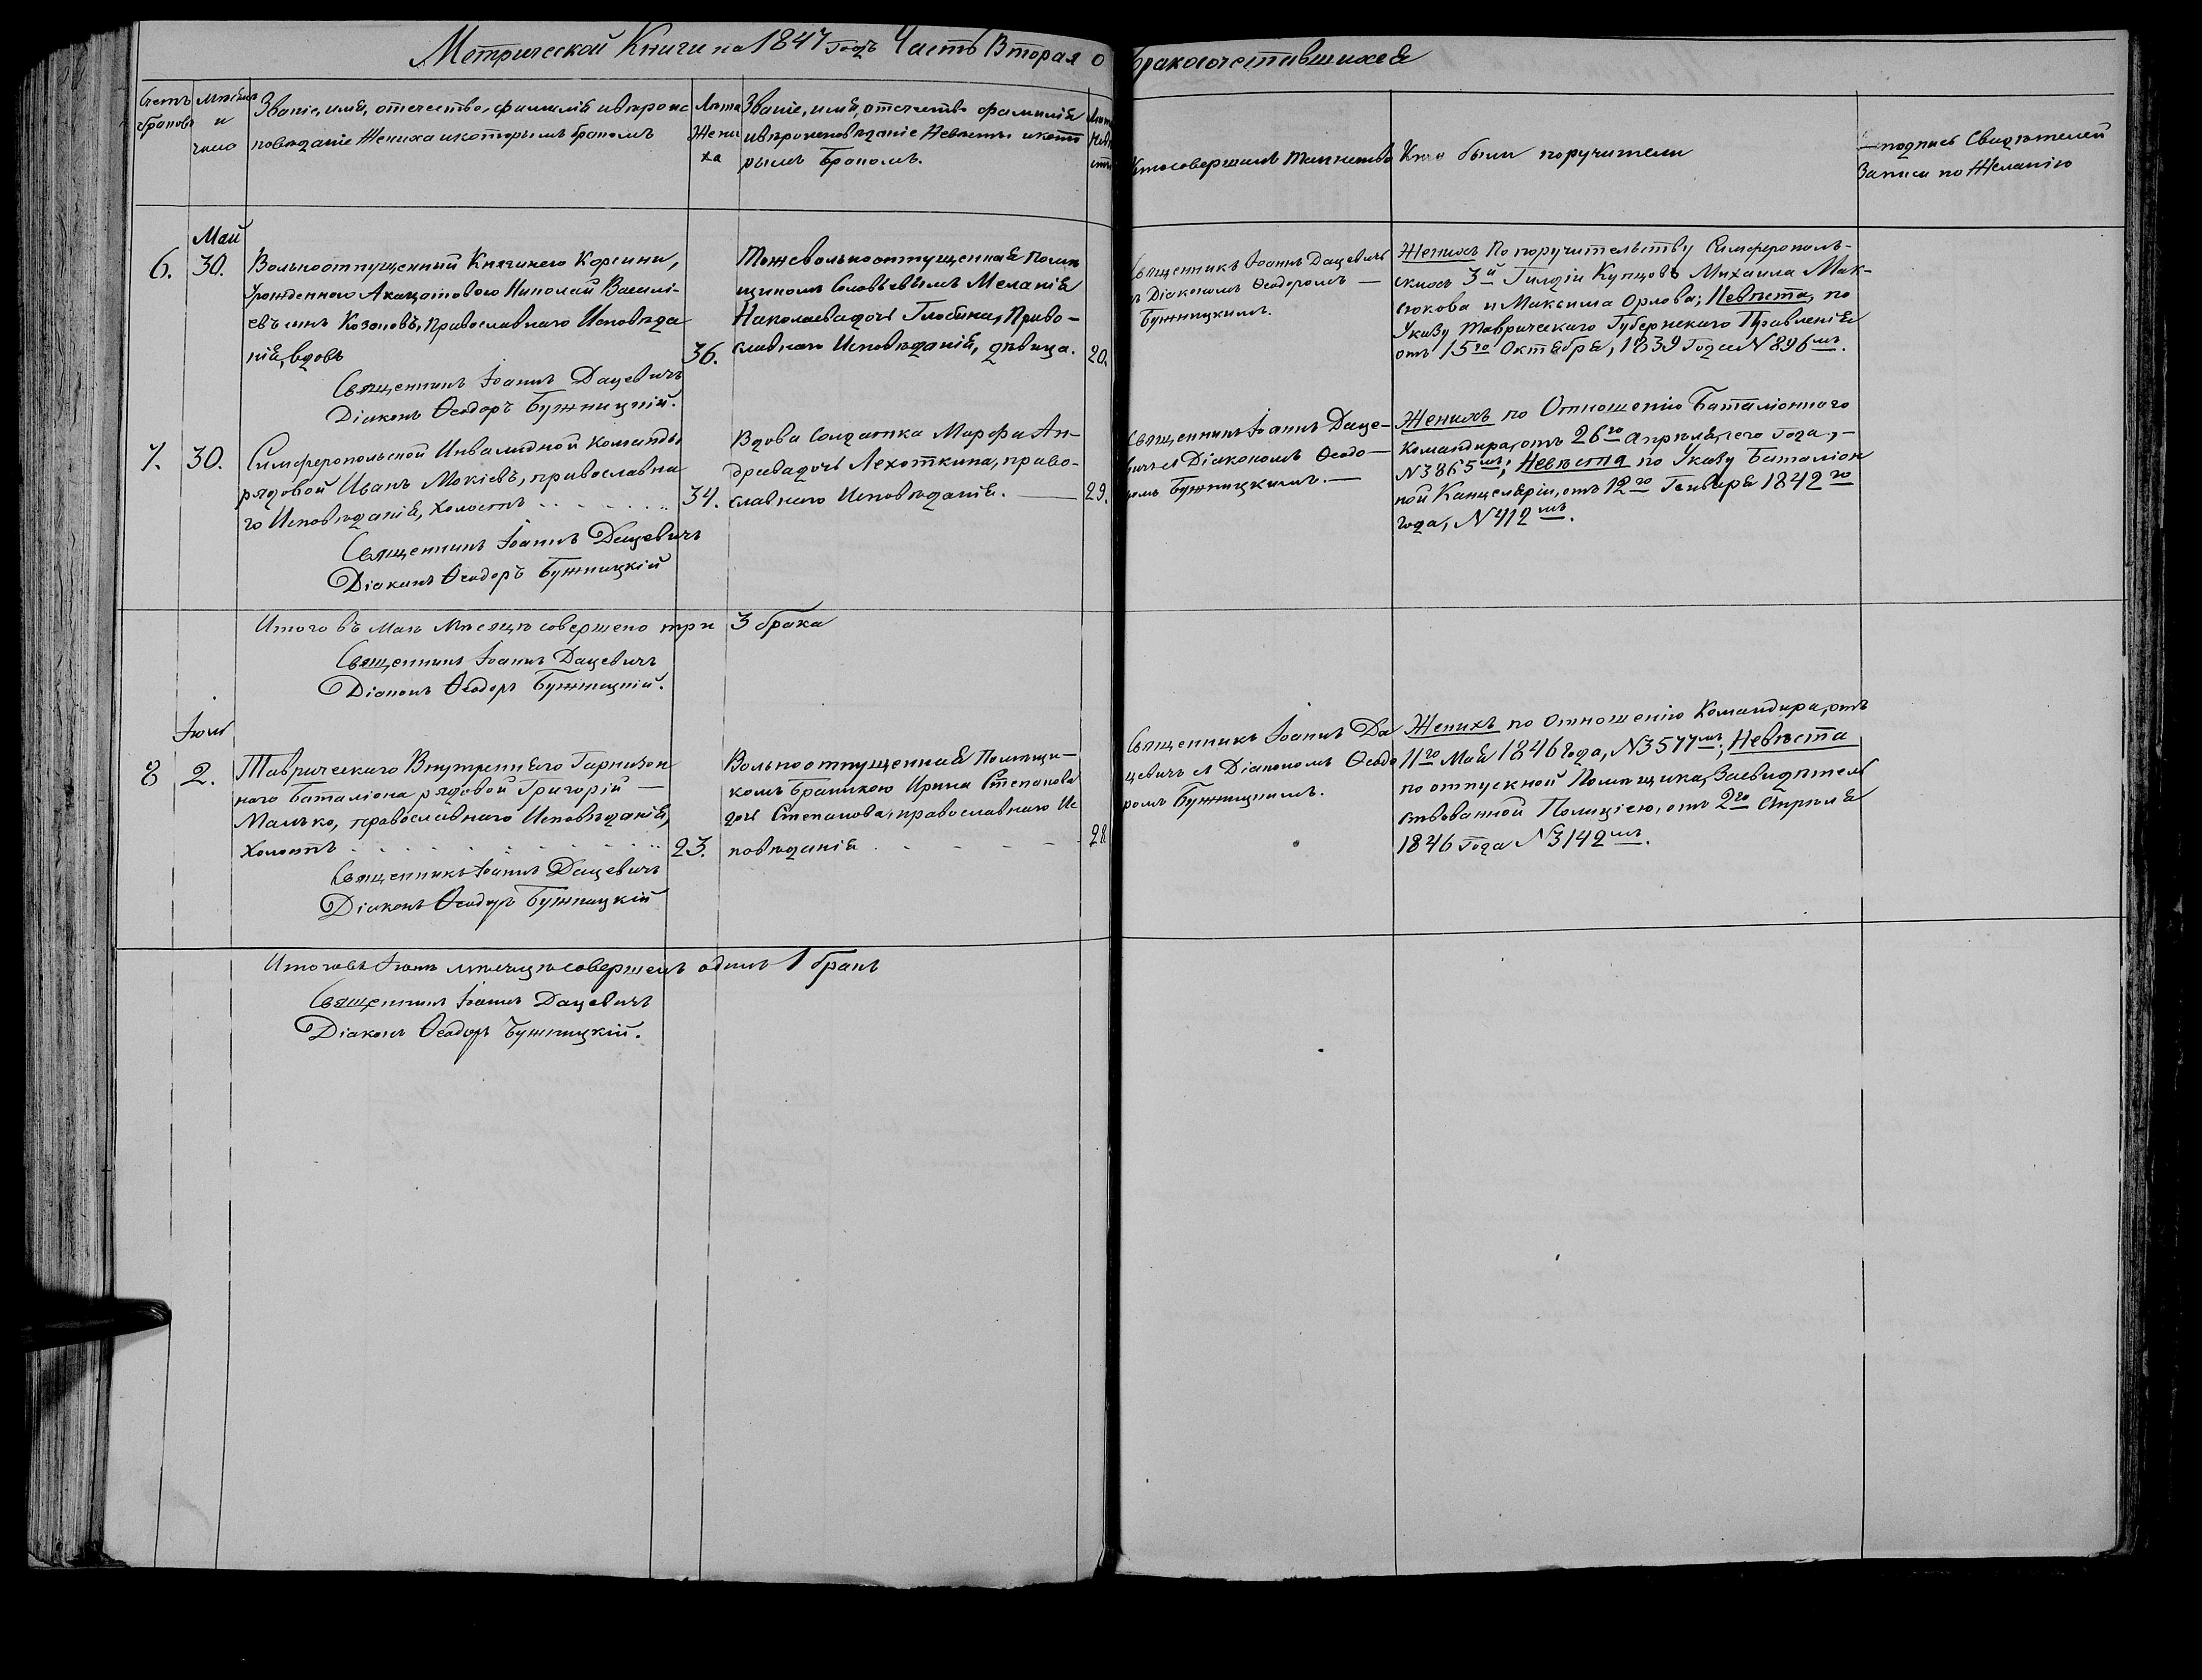 Метрической Книги на 1847 Годъ Часть Вторая о бракосочетавшихся
Счетъ браковъ
Мѣсяцъ и число
Званіе, имя, отечество, фамилія и вѣроис
повѣданіе Жениха и которымъ бракомъ
Лѣта
Жени
ха
Званіе, имя, отечество фамилія
и вѣроисповѣданіе Невѣсты и кото
рымъ бракомъ.
Лѣта
Невѣ
сты
Кто совершалъ таинство
Кто были поручители
подпись Свидѣтелей
Записи по Желанію
Май
6.
30.
Вольноотпущенный Княгинею
урожденною Николай Василі-
евъ сынъ Козоновъ, Православнаго Исповѣда
нія, вдовъ
36.
Священникъ Іоаннъ Дацевичъ
Діаконъ Ѳеодоръ Бужницкій.
Тоже вольноотпущенная Помѣ
щикомъ Словѣевымъ Меланія
Николаева дочь Глобина, Право-
славнаго Исповѣданія, дѣвица.
20.
Священникъ Іоаннъ Дацевичъ
съ Діакономъ Ѳеодоромъ —
Бужницкимъ.
Женихъ По поручительству Симферополь-
скихъ 3й Гильдіи Купцовъ Михаила Мак-
сюкова и Максима Орлова; Невѣста, по
Указу Таврическаго Губернскаго Правленія
отъ 15го Октября, 1839 Года N 896мъ.
7.
30.
Симферопольской Инвалидной Команды
рядовой Иванъ Мокіевъ, православна
го Исповѣданія, холостъ
34.
Священникъ Іоаннъ Дацевичъ
Діаконъ Ѳеодоръ Бужницкій
Вдова Солдатка Марфа Ан-
дреева дочь Лехоткина, право-
славнаго Исповѣданія. —
29.
Священникъ Іоаннъ Даце-
вичъ съ Діакономъ Ѳеодо-
ромъ Бужницкимъ. —
Женихъ по Отношенію Баталіоннаго
Командира, отъ 26го Апрѣля, сего Года, —
N 3865мъ; Невѣста по Указу Баталіон
ной Канцеляріи, отъ 12го Генваря 1842го
года, N 412мъ.
Итого въ Маѣ Мѣсяцѣ совершено три 3 брака
Священникъ Іоаннъ Дацевичъ
Діаконъ Ѳеодоръ Бужницкій.
Іюнь
8
2.
Таврическаго Внутренняго Гарнизон
наго Баталіона рядовой Григорій —
Малько, православнаго Исповѣданія,
холостъ
23.
Священникъ Іоаннъ Дацевичъ
Діаконъ Ѳеодоръ Бужницкій
Вольноотпущенная Помѣщи-
комъ Ирина Степанова
дочь Степанова, православнаго Ис
повѣданія
28
Священникъ Іоаннъ Да
цевичъ съ Діакономъ Ѳеодо
ромъ Бужницкимъ.
Женихъ по Отношенію Командира, отъ
11го Мая 1846 года, N 3577мъ; Невѣста
по отпускной Помѣщика, Засвидѣтель
ствованной Полиціею, отъ 2го Апрѣля
1846 Года N 3142мъ.
Итого въ Іюнѣ мѣсяцѣ совершенъ одинъ 1 бракъ
Священникъ Іоаннъ Дацевичъ
Діаконъ Ѳеодоръ Бужницкій.